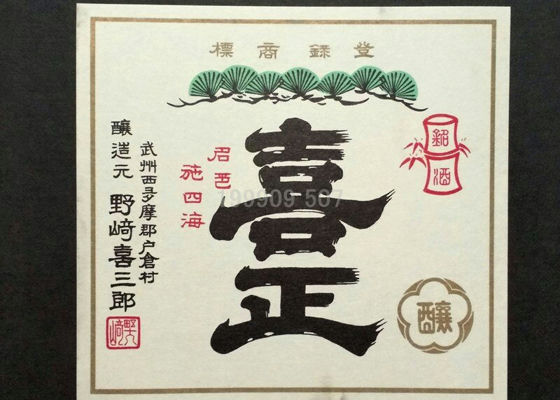 登録商標
銘酒
喜正
名邑
施四海
武州西多摩郡戸倉村
醸造元 野﨑喜三郎
野﨑
醸
199909 507